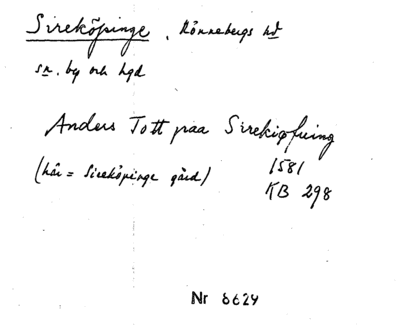 Sireköpinge, Rönnebergs hd
sn. by och hgd
Anders Tott paa Sirekiøfuing
(här = Sireköpinge gård)
1581
KB 298
Nr 8629